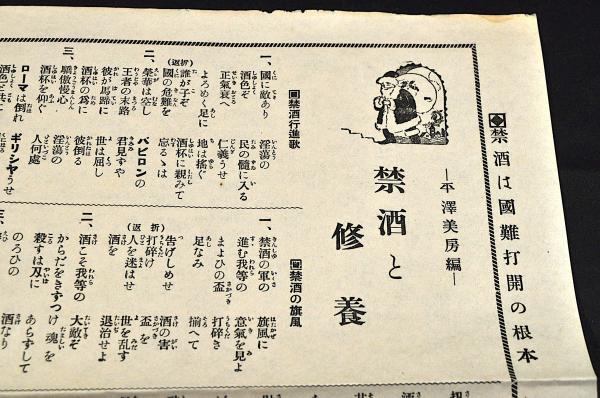 ◈禁酒は國難打開の根本
―平澤美房編―
禁酒と
修養
▣禁酒行進歌
一、國に敵あり 淫蕩の
酒色ぞ 民の髓に入る
正氣衰へ 仁義うせ
よろめく足に 地は搖ぐ
(返折)
誰が子ぞ 酒杯に親みて
國の危難を 忘るゝは
二、榮華は空し バビロンの
王者の末路 君見ずや
彼が馬蹄に 世は屈し
酒杯の爲に 彼倒る
三、驕傲慢心 淫蕩の
酒杯を仰ぐ 人何處
ローマは倒れ ギリシヤうせ
酒色と共に
▣禁酒の旗風
一、禁酒の軍の 旗風に
進む我等の 意氣を見よ
まよひの盃 打碎き
足なみ 揃へて
(返折)
告げしめせ 酒の害
打碎け 盃を
人を迷はせ 世を亂す
酒を 退治せよ
二、酒こそ我等の 大敵ぞ
からだをきずつけ 魂を
殺すは刃に あらずして
のろひの 酒なり
三、